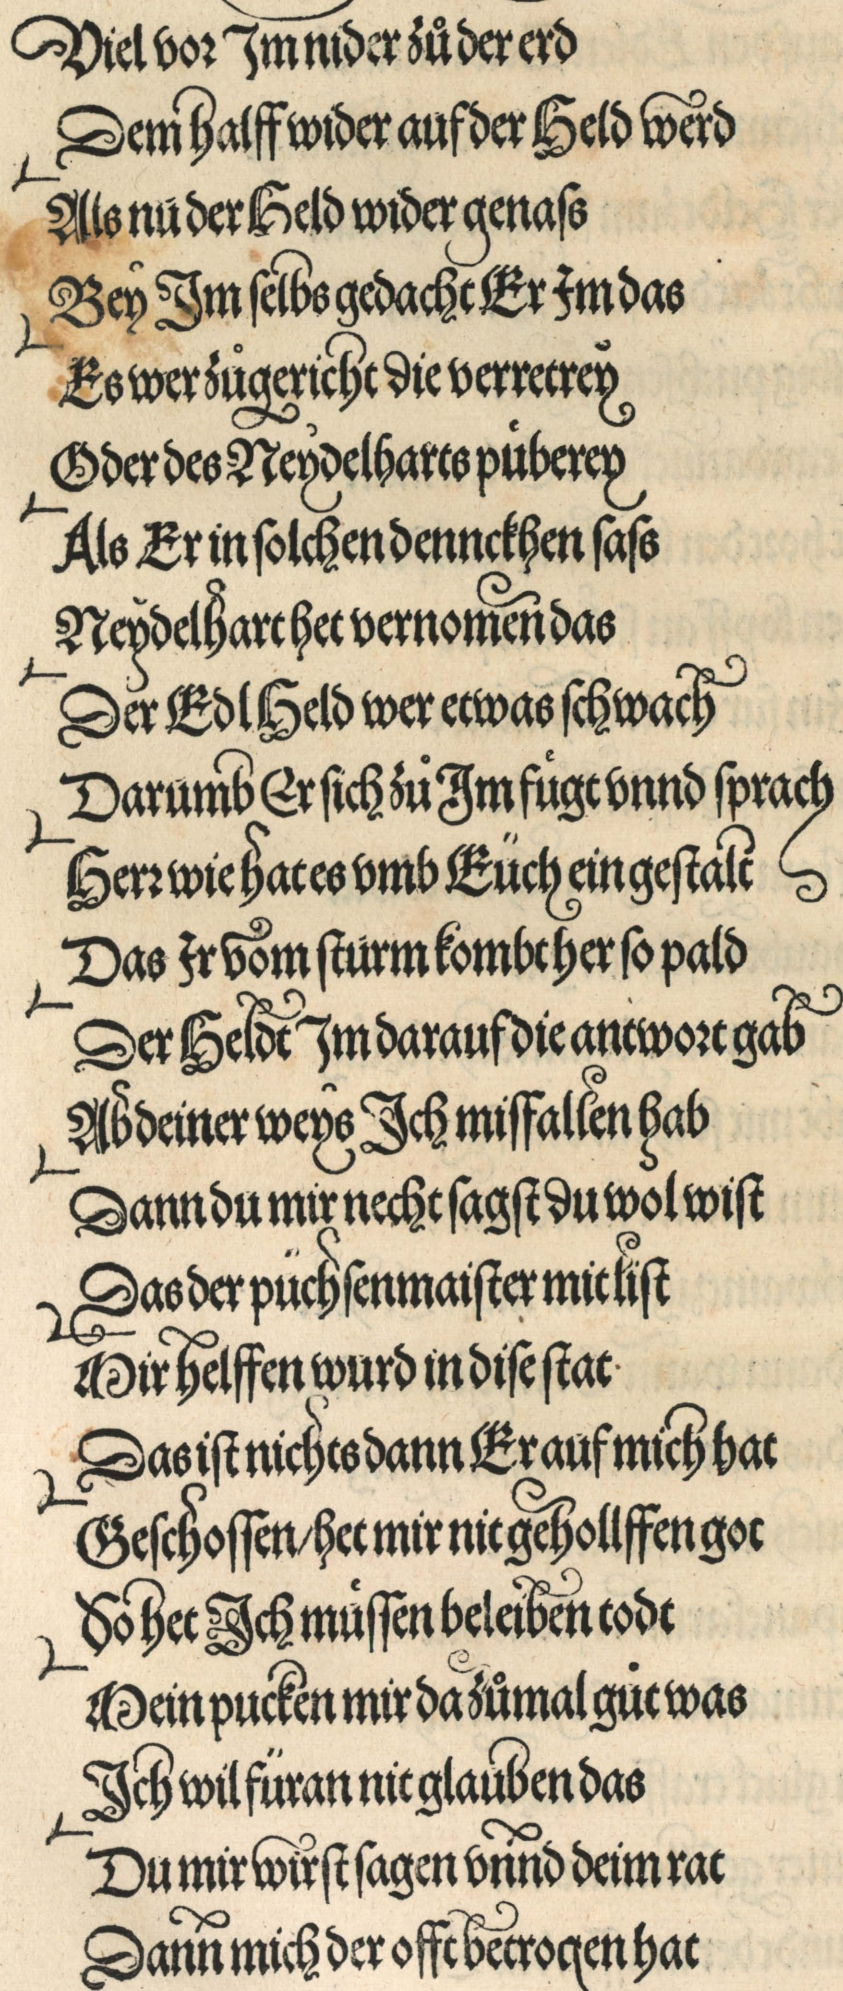 Viel vor Im nider zů der erd
Dem halff wider auf der Held werd
Als nu der Held wider genaſs
Bey Im ſelbs gedacht Er Im das
Es wer zůgericht die verretrey
Oder des Neydelharts půberey
Als Er in ſolchen dennckhen ſaſs
Neydelhart het vernomen das
Der Edl Held wer etwas ſchwach
Darumb Er ſich zů Im fůgt vnnd ſprach
Herr wie hat es vmb Eüch ein geſtalt
Das Ir vom ſturm kombt her ſo pald
Der Heldt Im darauf die antwort gab
Ab deiner weys Ich miſfallen hab
Dann du mir necht ſagſt du wol wiſt
Das der püchſenmaiſter mit liſt
Mir helffen wurd in diſe ſtat
Das iſt nichts dann Er auf mich hat
Geſchoſſen/ het mir nit gehollffen got
So het Ich můſſen beleiben todt
Mein pucken mir da zůmal gůt was
Ich wil füran nit glauben das
Du mir wirſt ſagen vnnd deim rat
Dann mich der offt betrogen hat